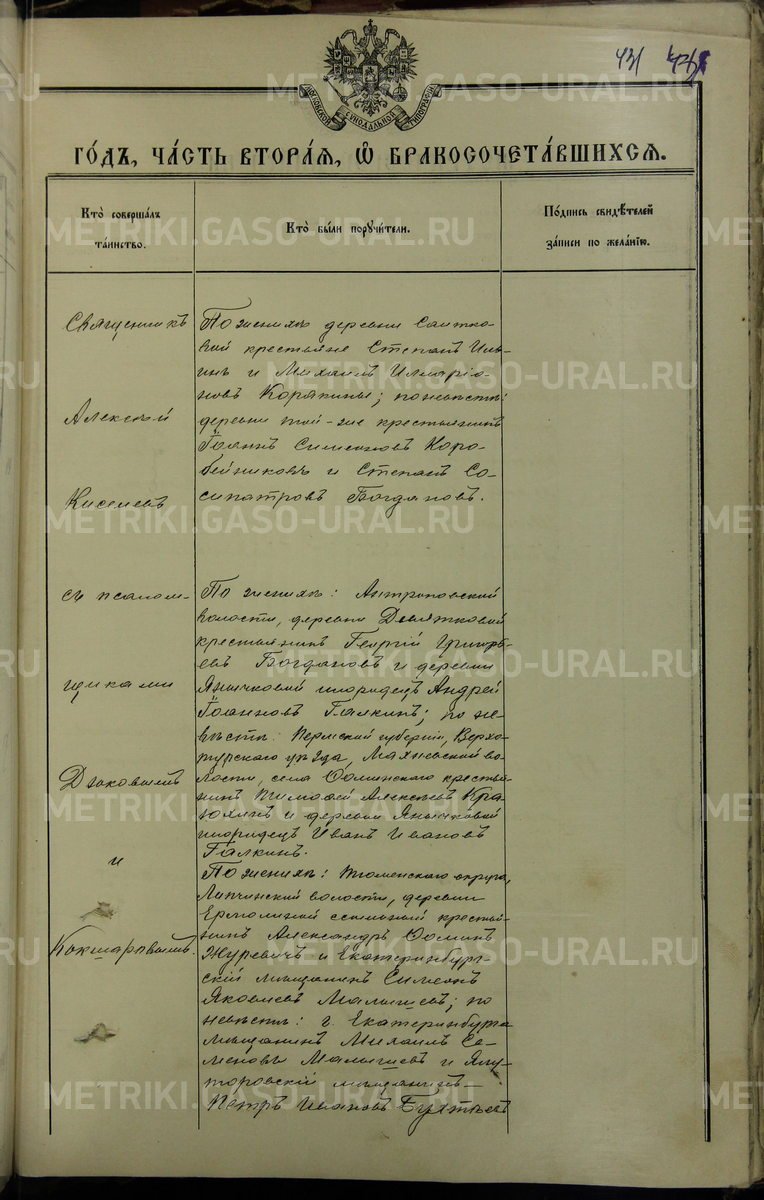 431
МОСКОВСКОЙ СѴНОДАЛЬНОЙ ТИПОГРАФІИ
ГО́ДЪ, ЧА́СТЬ ВТОРА́Я, Ѡ БРАКОСОЧЕТА́ВШИХСЯ.
Кто̀ соверша́лъ
та́инство.
Кто̀ бы́ли поручи́тели.
По́дпись свидѣ́телей
за́писи по жела́нїю.
Священникъ
Алексѣй
Киселевъ
съ псалом-
щиками
Дьяковымъ
и
Кокшаровымъ.
По женихѣ деревни Саитко-
вой крестьяне Степанъ Иль-
инъ и Михаилъ Илларіо-
новъ Коряпины; по невѣстѣ:
деревни той-же крестьянинъ
Іоаннъ Симеоновъ Коро-
бейниковъ и Степанъ Со-
сипатровъ Богдановъ.
По женихѣ: Антроповской
волости, деревни Девятковой
крестьянинъ Георгій Григорь-
евъ Богдановъ и деревни
Янычковой инородецъ Андрей
Іоанновъ Галкинъ; по не-
вѣстѣ: Пермской губерніи, Верхо-
турскаго уѣзда, Махневской во-
лости, села Фоминскаго кресть-
янинъ Тимофей Алексѣевъ
и деревни Янычковой
инородецъ Иванъ Ивановъ
Галкинъ.
По женихѣ: Тюменскаго округа,
Липчинской волости, деревни
Ермолиной ссыльный крестья-
нинъ Александръ Ѳоминъ
Журевичъ и Екатеринбург-
скій мѣщанинъ Симеонъ
Яковлевъ Малышевъ; по
невѣстѣ: г. Екатеринбурга
мѣщанинъ Михаилъ Се-
меновъ Малышевъ и Ялу-
торовскій мѣщанинъ
Петръ Ивановъ
METRIKI.GASO-URAL.RU